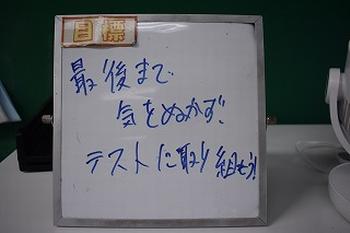 目標
最後まで
気をぬかず!
テストに取り組もう!